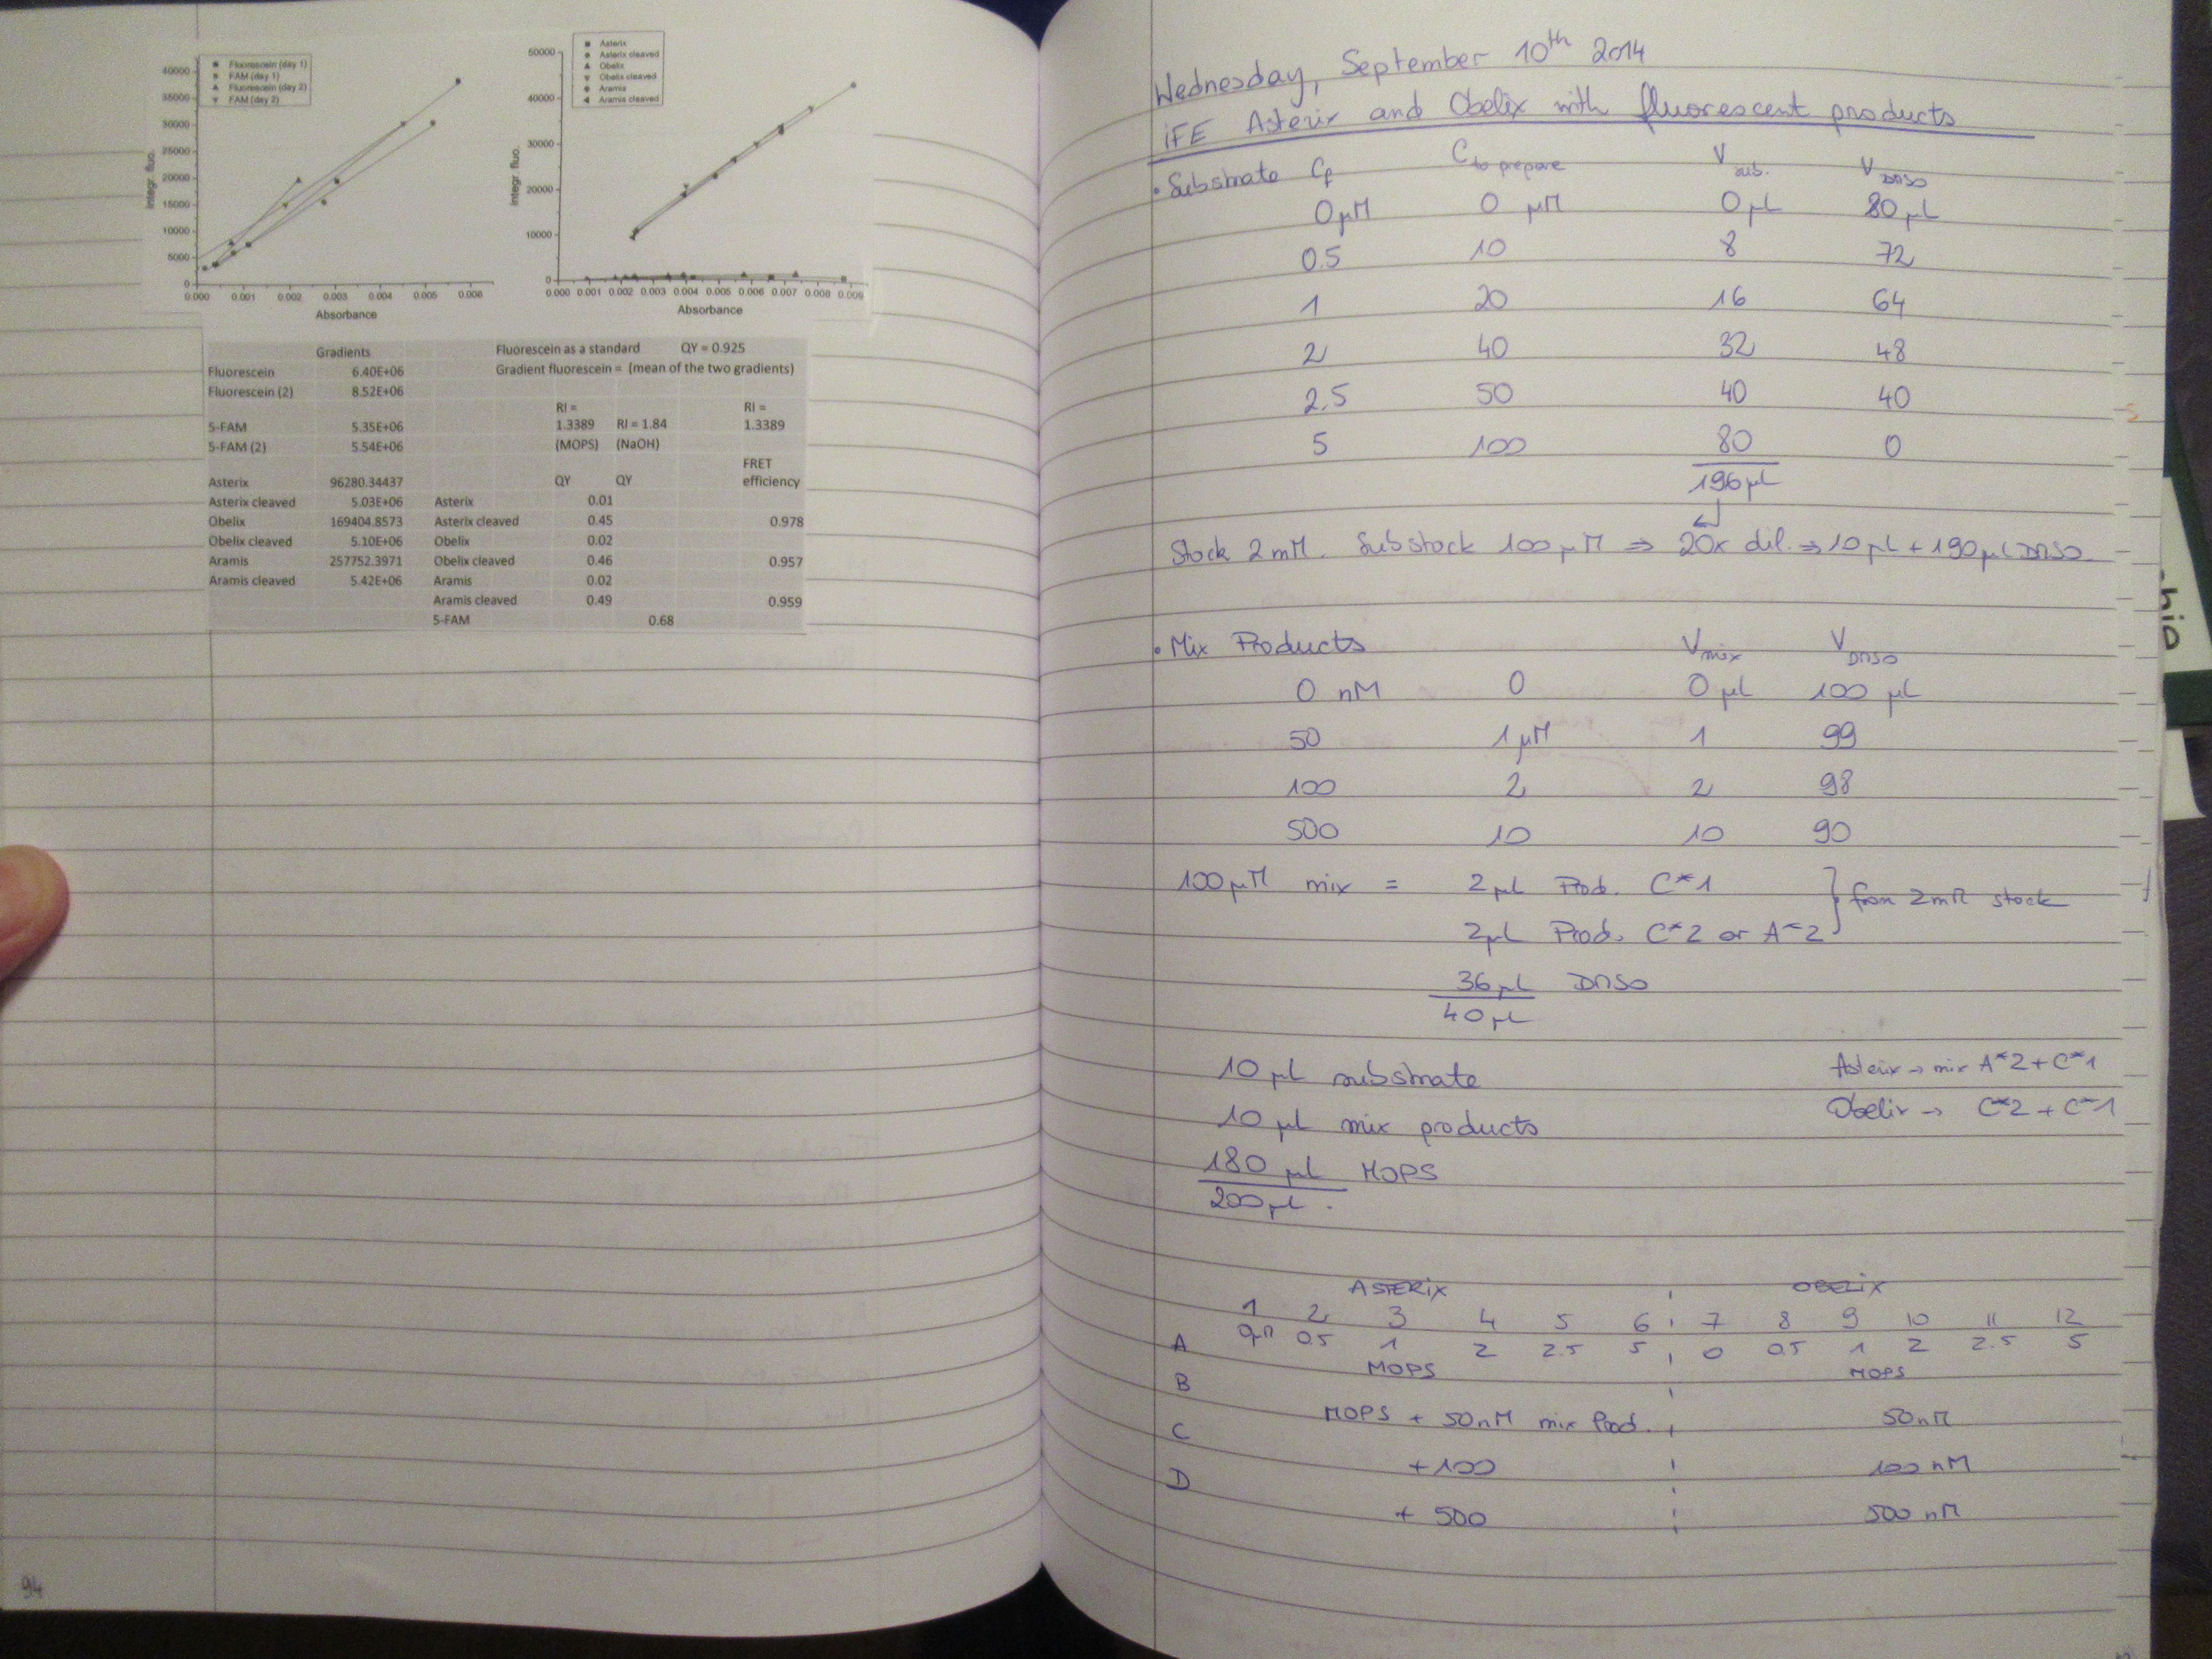 Fluorescein (day 1)
FAM (day 1)
Fluorescein (day 2)
FAM (day 2)
40000
35000
30000
25000
20000
15000
10000
5000
0
Integr. fluo.
0.000 0.001 0.002 0.003 0.004 0.005 0.006
Absorbance
Asterix
Asterix cleaved
Obelix
Obelix cleaved
Aramis
Aramis cleaved
50000
40000
30000
20000
10000
0
Integr. fluo.
0.000 0.001 0.002 0.003 0.004 0.005 0.006 0.007 0.008 0.009
Absorbance
Gradients Fluorescein as a standard QY = 0.925
Fluorescein 6.40E+06 Gradient fluorescein = (mean of the two gradients)
Fluorescein (2) 8.52E+06
RI = RI =
5-FAM 5.35E+06 1.3389 RI = 1.84 1.3389
5-FAM (2) 5.54E+06 (MOPS) (NaOH)
FRET
Asterix 96280.34437 QY QY efficiency
Asterix cleaved 5.03E+06 Asterix 0.01
Obelix 169404.8573 Asterix cleaved 0.45 0.978
Obelix cleaved 5.10E+06 Obelix 0.02
Aramis 257752.3971 Obelix cleaved 0.46 0.957
Aramis cleaved 5.42E+06 Aramis 0.02
Aramis cleaved 0.49 0.959
5-FAM 0.68
94
Wednesday, September 10th 2014
iFE Asterix and Obelix with fluorescent products
• Substrate Cf C to prepare V sub. V DMSO
0 µM 0 µM 0 µL 80 µL
0.5 10 8 72
1 20 16 64
2 40 32 48
2.5 50 40 40
5 100 80 0
196 µL
Stock 2 mM. Substock 100 µM ⇒ 20x dil. ⇒ 10 µL + 190 µL DMSO
• Mix Products V mix V DMSO
0 nM 0 0 µL 100 µL
50 1 µM 1 99
100 2 2 98
500 10 10 90
100 µM mix = 2 µL Prod. C*1
2 µL Prod. C*2 or A*2 } from 2 mM stock
36 µL DMSO
40 µL
10 µL substrate
10 µL mix products
180 µL MOPS
200 µL.
Asterix → mix A*2 + C*1
Obelix → C*2 + C*1
ASTERiX OBELiX
1 2 3 4 5 6 7 8 9 10 11 12
A 0 µM 0.5 1 2 2.5 5 0 0.5 1 2 2.5 5
MOPS MOPS
B MOPS + 50 nM mix Prod. 50 nM
C + 100 100 nM
D + 500 500 nM
hio